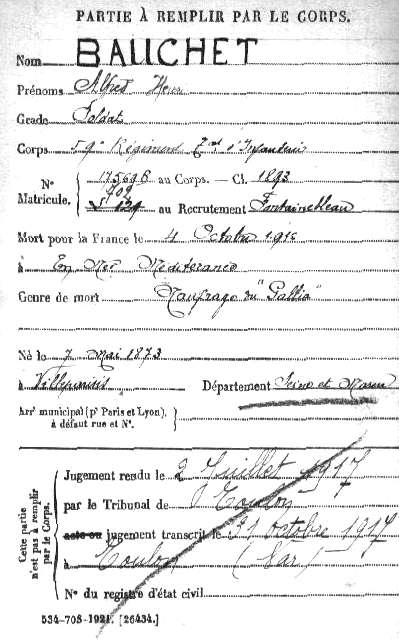 PARTIE À REMPLIR PAR LE CORPS.
Nom BAUCHET
Prénoms Alfred Henri
Grade Soldat
Corps 59e Régiment d'Infanterie
N° Matricule. 17569B au Corps. — Cl. 1893
709
au Recrutement Fontainebleau
Mort pour la France le 4 Octobre 1916
à En Mer Méditeranée
Genre de mort Naufrage du "Gallia"
Né le 7 Mai 1873
à Villeparisis Département Seine et Marne
Arrt municipal (pr Paris et Lyon), à défaut rue et N°.
Cette partie n'est pas à remplir par le Corps.
Jugement rendu le 2 Juillet 1917
par le Tribunal de Toulon
acte ou jugement transcrit le 31 octobre 1917
à Toulon (Var)
N° du registre d'état civil
534-708-1921. [26434.]